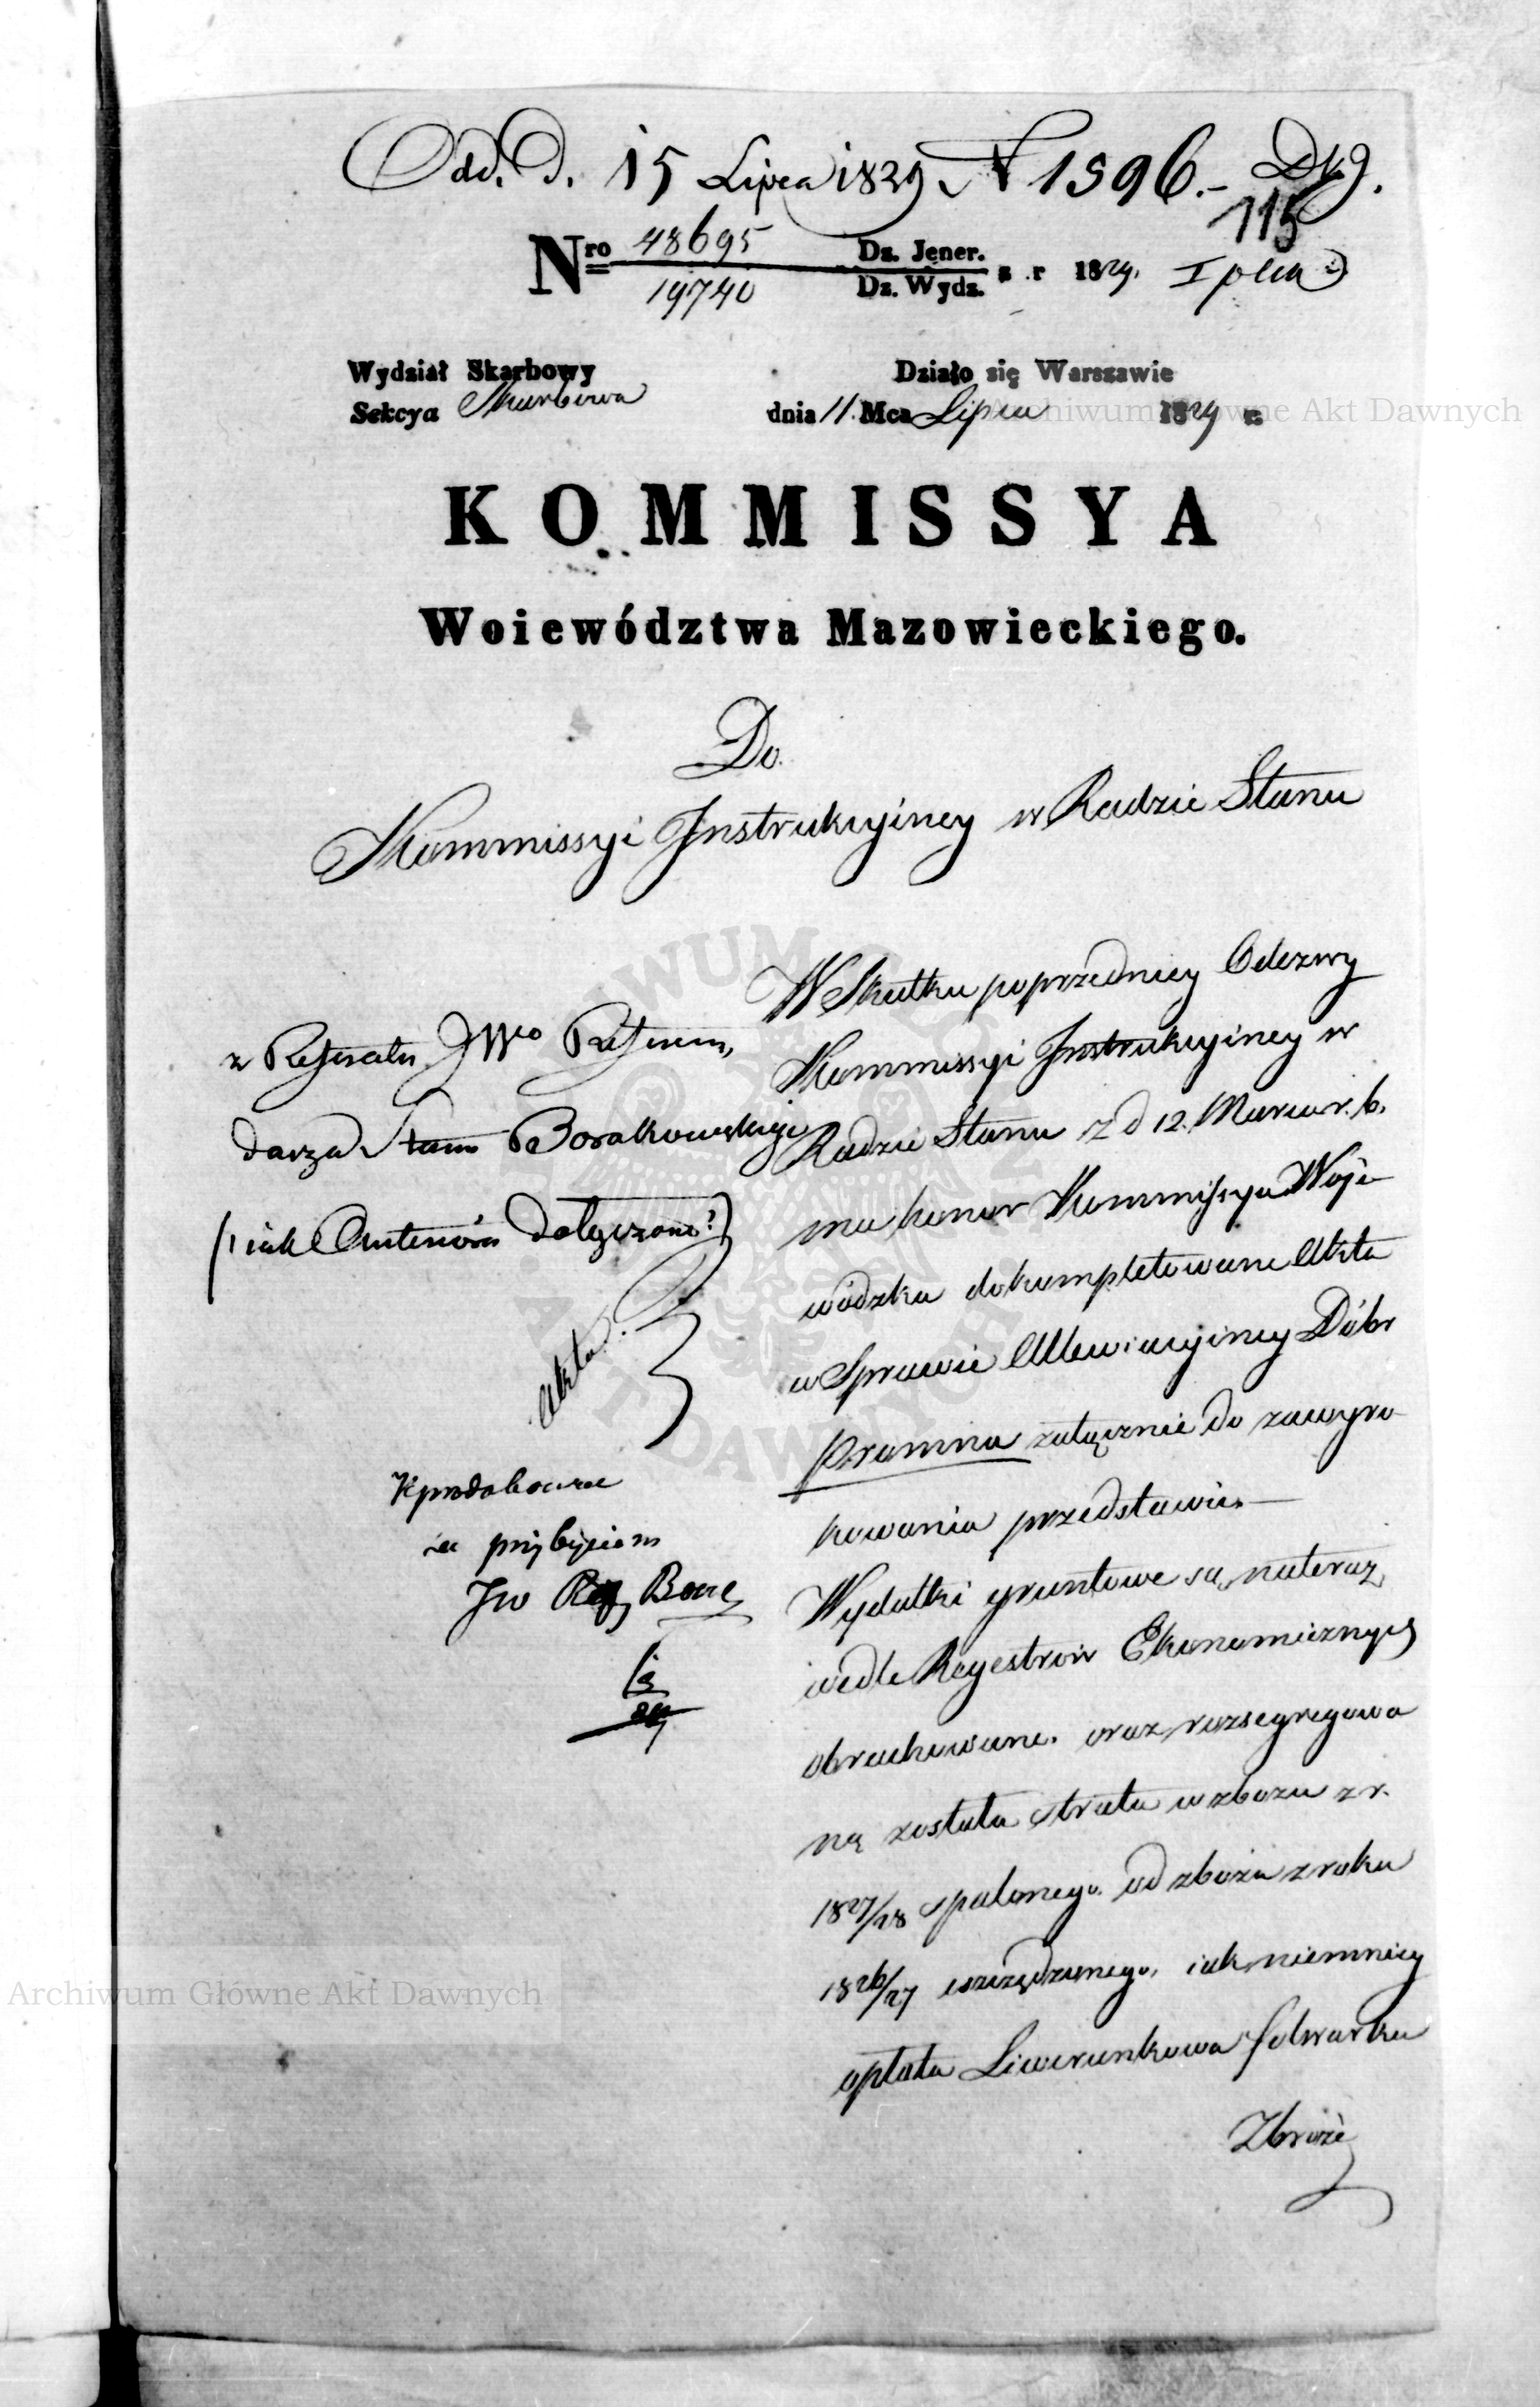 Odd. d. 15 Lipca 1829 N 1596.- Dkg.
115
Nro 48695 Dz. Jener.
19740 Dz. Wydz. z r 1829.
Wydział Skarbowy
Sekcya Skarbowa
Działo się Warszawie
dnia 11 Mca Lipca 1829 r.
KOMMISSYA
Woiewództwa Mazowieckiego.
Do
Kommissyi Instrukcyiney w Radzie Stanu
z Referatu JWo Referen,
darza Stanu Borakowskiego
(: iak Anteriora dołączone :)
Akta.
K podobowe
za przybyciem
Jw Ref Boro
W Skutku poprzedniey Odezwy
Kommissyi Instrukcyiney w
Radzie Stanu z d 12. Marca r. b.
ma honor Kommissya Woje
wódzka dokompletowane Akta
w Sprawie Allewiacyiney Dóbr
Promna załącznie do zawyro
kowania przedstawić.—
Wydatki gruntowe są nateraz
wedle Regestrów Ekonomicznych
obrachowane. oraz rozsegregowa
ną została strata w zbożu z r.
1827/28 spalonego. od zboża z roku
1826/27 oszczędzonego, iak niemniey
opłata Liwerunkowa folwarku
Zbroże
Archiwum Główne Akt Dawnych
Archiwum Główne Akt Dawnych